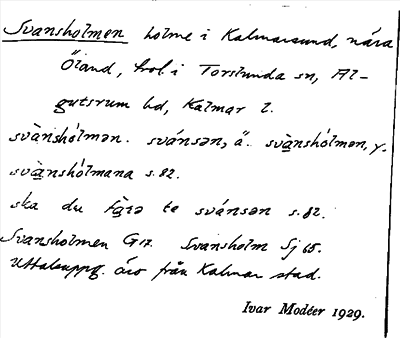 Svansholmen holme i Kalmarsund, nära
Öland, trol. i Torslunda sn, Al-
gutsrum hd, Kalmar l.
svànshólmən. svánsən, ä. svànshólmen, y.
svànshólmana s. 82.
ska du fàrə te svánsən s. 82.
Svansholmen G 12. Svansholm Sj 65.
Uttalsuppg. äro från Kalmar stad.
Ivar Modéer 1929.